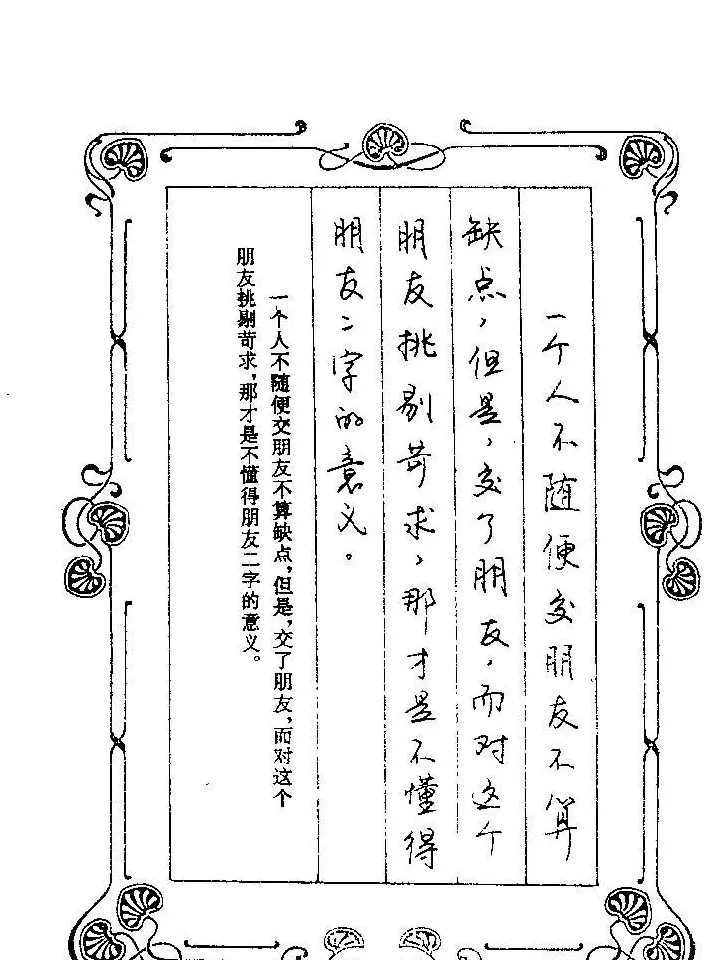 一个人不随便交朋友不算
缺点，但是，交了朋友，而对这个
朋友挑剔苛求，那才是不懂得
朋友二字的意义。
一个人不随便交朋友不算缺点，但是，交了朋友，而对这个
朋友挑剔苛求，那才是不懂得朋友二字的意义。